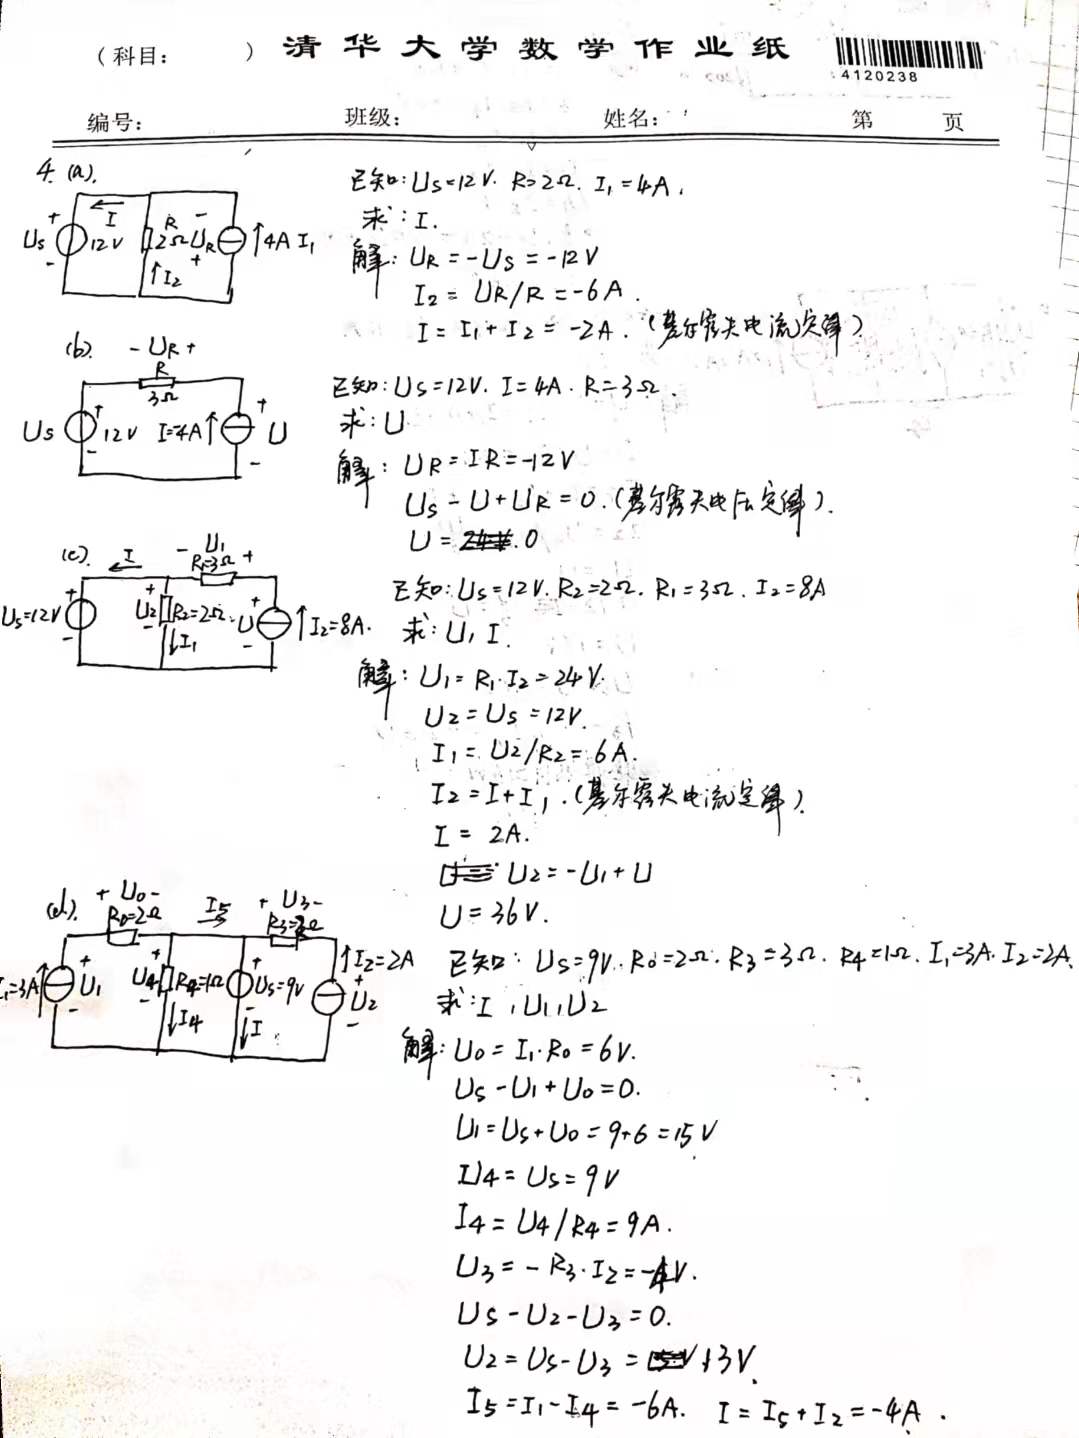 （科目：　　）清华大学数学作业纸
4120238
编号：　班级：　姓名：　第　页
4. (a).
I
R
Us 12V 2Ω UR 4A I₁
I₂
已知: Us=12V. R=2Ω. I₁=4A.
求: I.
解: UR = -Us = -12V
I₂ = UR/R = -6A.
I = I₁+I₂ = -2A. (基尔霍夫电流定律)
(b). - UR +
R
3Ω
Us 12V I=4A U
已知: Us=12V. I=4A. R=3Ω.
求: U
解: UR = IR = -12V
Us - U + UR = 0. (基尔霍夫电压定律).
U = 0
(c). I - U₁ +
R₁=3Ω
Us=12V U₂ R₂=2Ω U I₂=8A.
I₁
已知: Us=12V. R₂=2Ω. R₁=3Ω. I₂=8A
求: U, I.
解: U₁ = R₁·I₂ = 24V.
U₂ = Us = 12V.
I₁ = U₂/R₂ = 6A.
I₂ = I+I₁. (基尔霍夫电流定律).
I = 2A.
U₂ = -U₁ + U
U = 36V.
(d). + U₀ - I₅ + U₃ -
R₀=2Ω R₃=3Ω
I₂=2A
I₁=3A U₁ U₄ R₄=1Ω Us=9V U₂
I₄ I
已知: Us=9V. R₀=2Ω. R₃=3Ω. R₄=1Ω. I₁=3A. I₂=2A.
求: I, U₁, U₂
解: U₀ = I₁·R₀ = 6V.
Us - U₁ + U₀ = 0.
U₁ = Us + U₀ = 9+6 = 15V
U₄ = Us = 9V
I₄ = U₄/R₄ = 9A.
U₃ = -R₃·I₂ = -4V.
Us - U₂ - U₃ = 0.
U₂ = Us - U₃ = 13V.
I₅ = I₁ - I₄ = -6A. I = I₅ + I₂ = -4A.